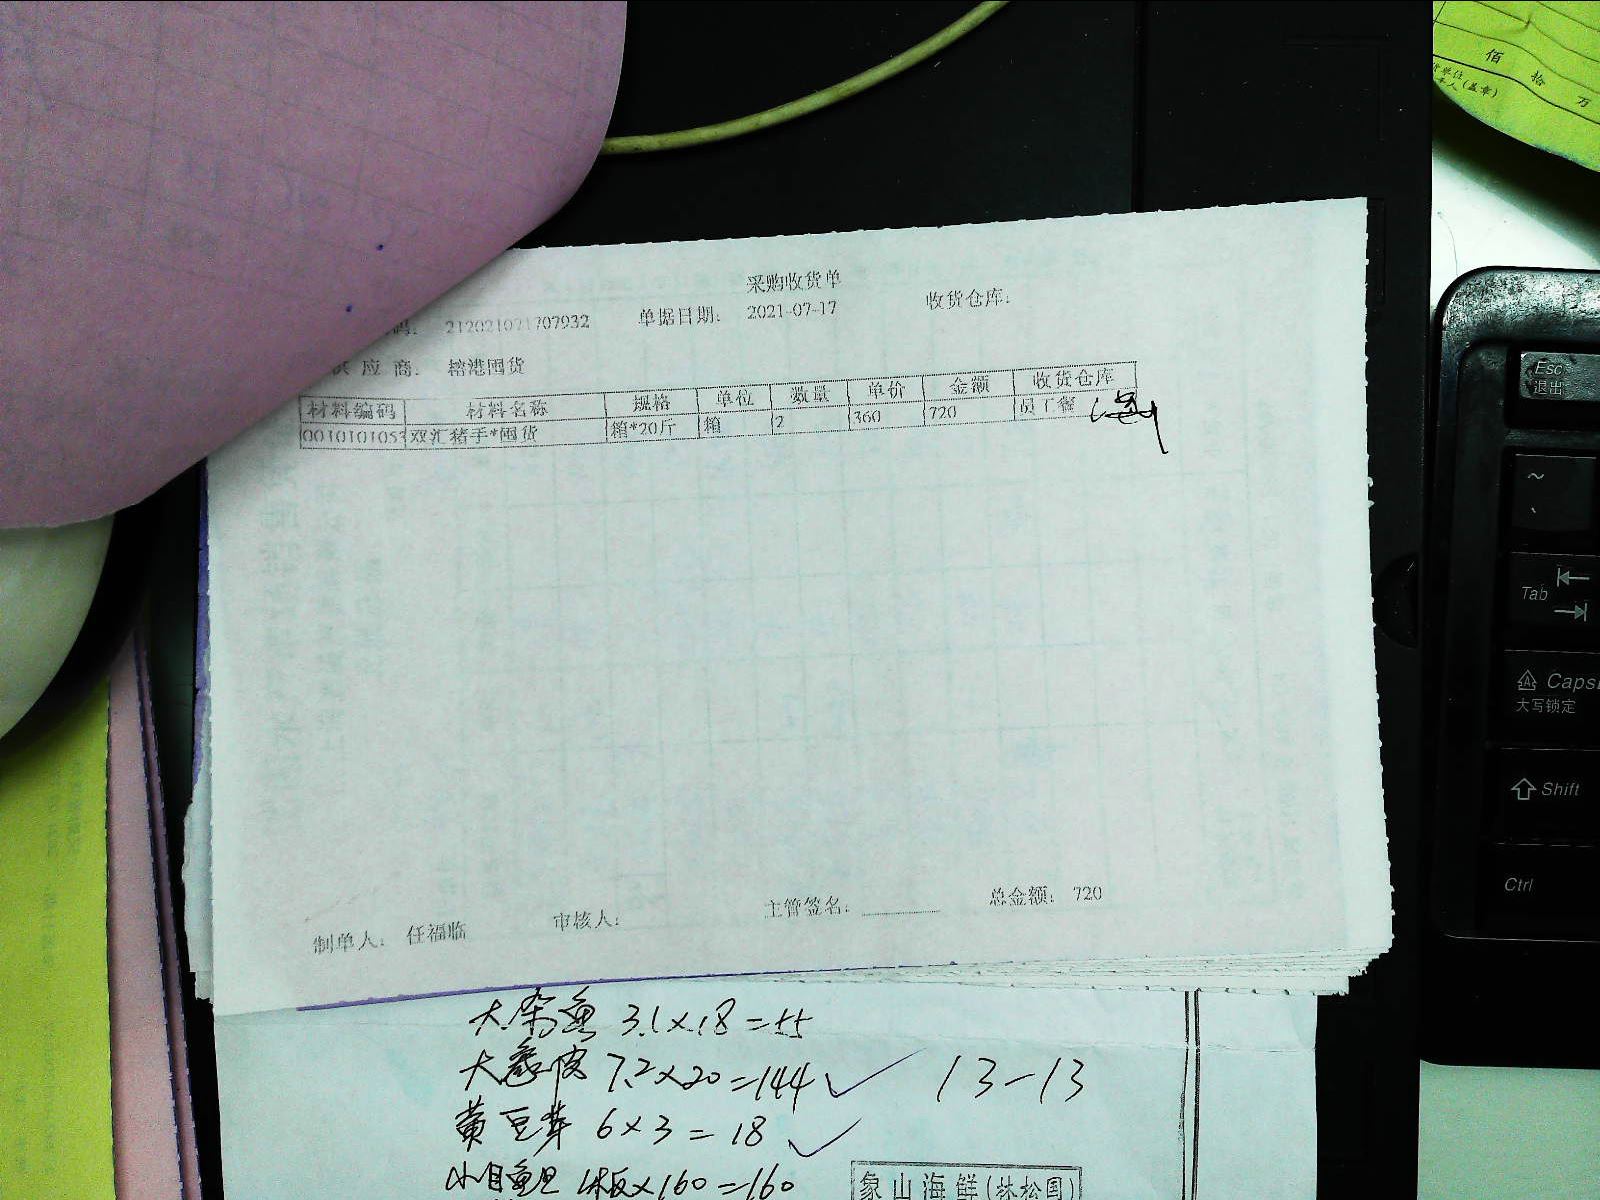 采购收货单
码： 212021021707932 单据日期： 2021-07-17 收货仓库：
供应商： 榕港囤货
材料编码 材料名称 规格 单位 数量 单价 金额 收货仓库
0010101053 双汇猪手*囤货 箱*20斤 箱 2 360 720 员工餐
制单人： 任福临 审核人： 主管签名： 总金额： 720
大杂鱼 3.1×18=55
7.2×20=144 13-13
黄豆芽 6×3=18
×160=160
象山海鲜(林松国)
佰 拾 万
(盖章)
Esc
退出
~
Tab
Caps
大写锁定
Shift
Ctrl